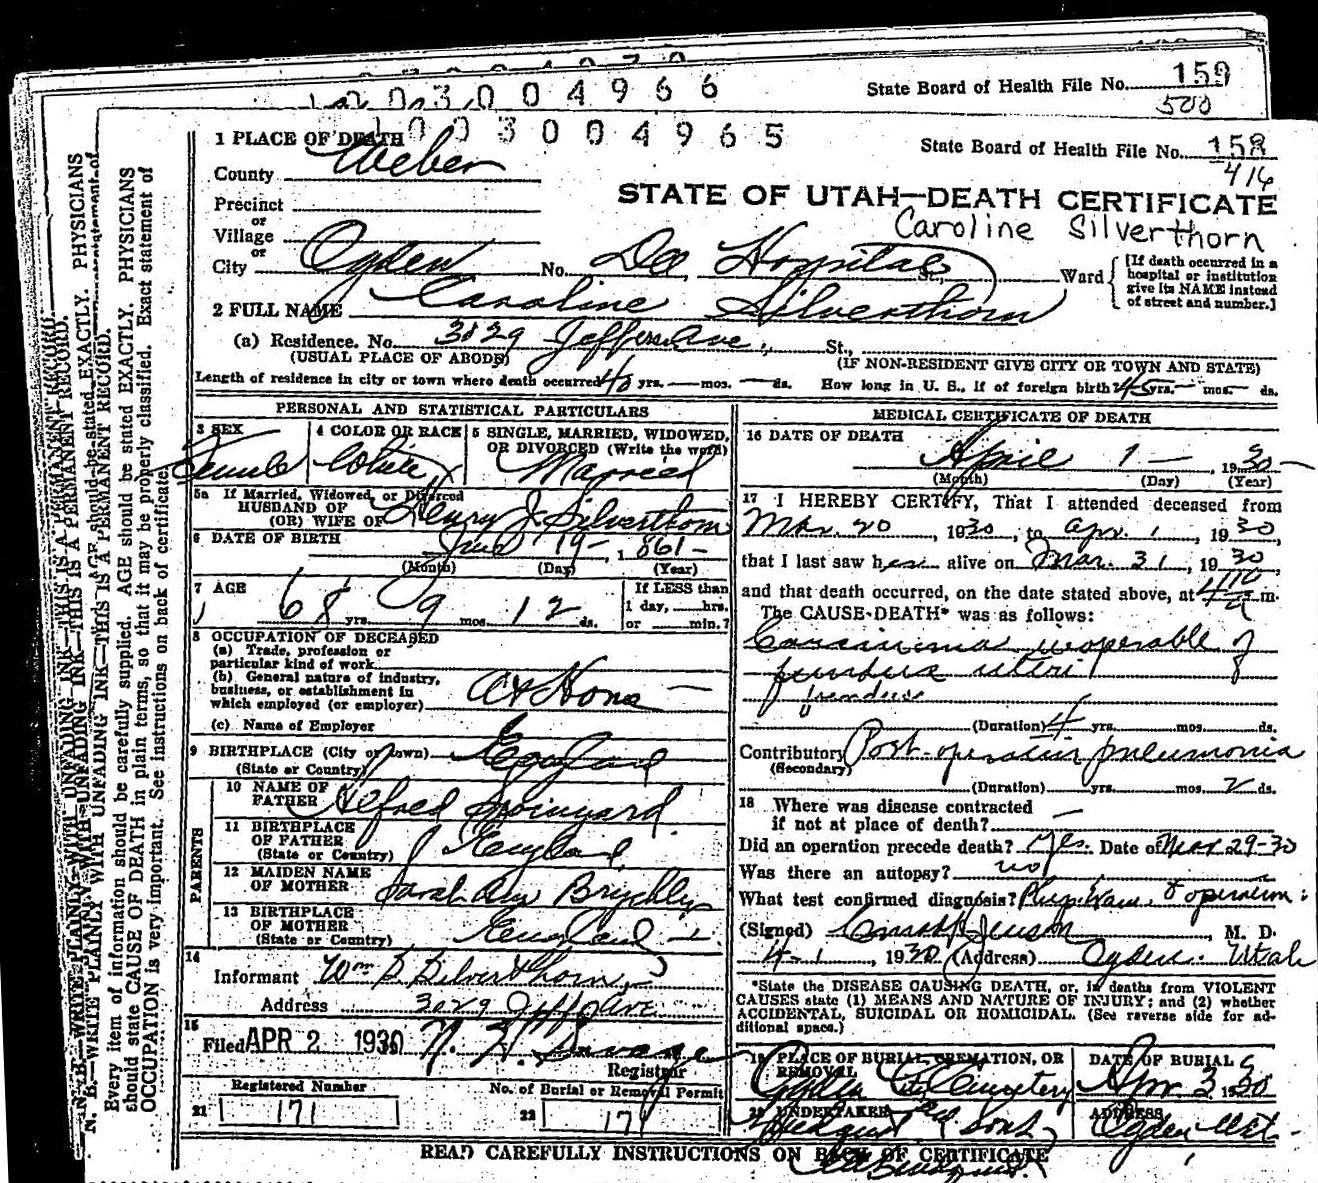 2 0 3 0 0 4 9 6 6
State Board of Health File No. 159
500
0 0 3 0 0 4 9 6 5
State Board of Health File No. 158
416
1 PLACE OF DEATH
County Weber
STATE OF UTAH—DEATH CERTIFICATE
Precinct
or
Village
Caroline Silverthorn
or
City Ogden No. Dee Hospital St., Ward
[If death occurred in a
hospital or institution
give its NAME instead
of street and number.]
2 FULL NAME Caroline Silverthorn
(a) Residence. No. 3029 Jefferson Ave. St.,
(USUAL PLACE OF ABODE) (IF NON-RESIDENT GIVE CITY OR TOWN AND STATE)
Length of residence in city or town where death occurred yrs. — mos. — ds. How long in U. S., if of foreign birth? 45 yrs. — mos. — ds.
PERSONAL AND STATISTICAL PARTICULARS
3 SEX 4 COLOR OR RACE 5 SINGLE, MARRIED, WIDOWED,
OR DIVORCED (Write the word)
Female White Married
5a If Married, Widowed, or Divorced
HUSBAND OF
(OR) WIFE OF Henry J. Silverthorn
6 DATE OF BIRTH 19 — 1861 —
(Month) (Day) (Year)
7 AGE If LESS than
68 yrs. 9 mos. 12 ds. 1 day, hrs.
or min.?
8 OCCUPATION OF DECEASED
(a) Trade, profession or
particular kind of work
(b) General nature of industry,
business, or establishment in
which employed (or employer) At Home —
(c) Name of Employer
9 BIRTHPLACE (City or town) England
(State or Country)
PARENTS
10 NAME OF
FATHER Alfred
11 BIRTHPLACE
OF FATHER England
(State or Country)
12 MAIDEN NAME
OF MOTHER Sarah Ann
13 BIRTHPLACE
OF MOTHER England
(State or Country)
14
Informant Wm Silverthorn
Address 3029 Jeff Ave
15
Filed APR 2 1930
Registrar
Registered Number No. of Burial or Removal Permit
21 171 22 171
MEDICAL CERTIFICATE OF DEATH
16 DATE OF DEATH
April 1 — , 1930 —
(Month) (Day) (Year)
17 I HEREBY CERTIFY, That I attended deceased from
Mar. 20, 1930, to Apr. 1, 1930,
that I last saw her alive on Mar. 31, 1930
and that death occurred, on the date stated above, at 4 10 a m.
The CAUSE DEATH* was as follows:
Carcinoma inoperable of
fundus uteri
fundus
(Duration) 4 yrs. mos. ds.
Contributory Post-operative pneumonia
(Secondary)
(Duration) yrs. mos. 2 ds.
18 Where was disease contracted
if not at place of death? —
Did an operation precede death? Yes. Date of Mar 29-30
Was there an autopsy? no
What test confirmed diagnosis? Phys. Exam. & operation
(Signed) Jenson, M. D.
4-1, 1930 (Address) Ogden Utah
*State the DISEASE CAUSING DEATH, or, in deaths from VIOLENT
CAUSES state (1) MEANS AND NATURE OF INJURY; and (2) whether
ACCIDENTAL, SUICIDAL OR HOMICIDAL. (See reverse side for ad-
ditional space.)
19 PLACE OF BURIAL, CREMATION, OR
REMOVAL
Ogden City Cemetery
DATE OF BURIAL
Apr. 3 1930
20 UNDERTAKER
& Sons
ADDRESS
Ogden Utah
READ CAREFULLY INSTRUCTIONS ON BACK OF CERTIFICATE
N. B.—WRITE PLAINLY WITH UNFADING INK—THIS IS A PERMANENT RECORD.
Every item of information should be carefully supplied. AGE should be stated EXACTLY. PHYSICIANS
should state CAUSE OF DEATH in plain terms, so that it may be properly classified. Exact statement of
OCCUPATION is very important. See instructions on back of certificate.